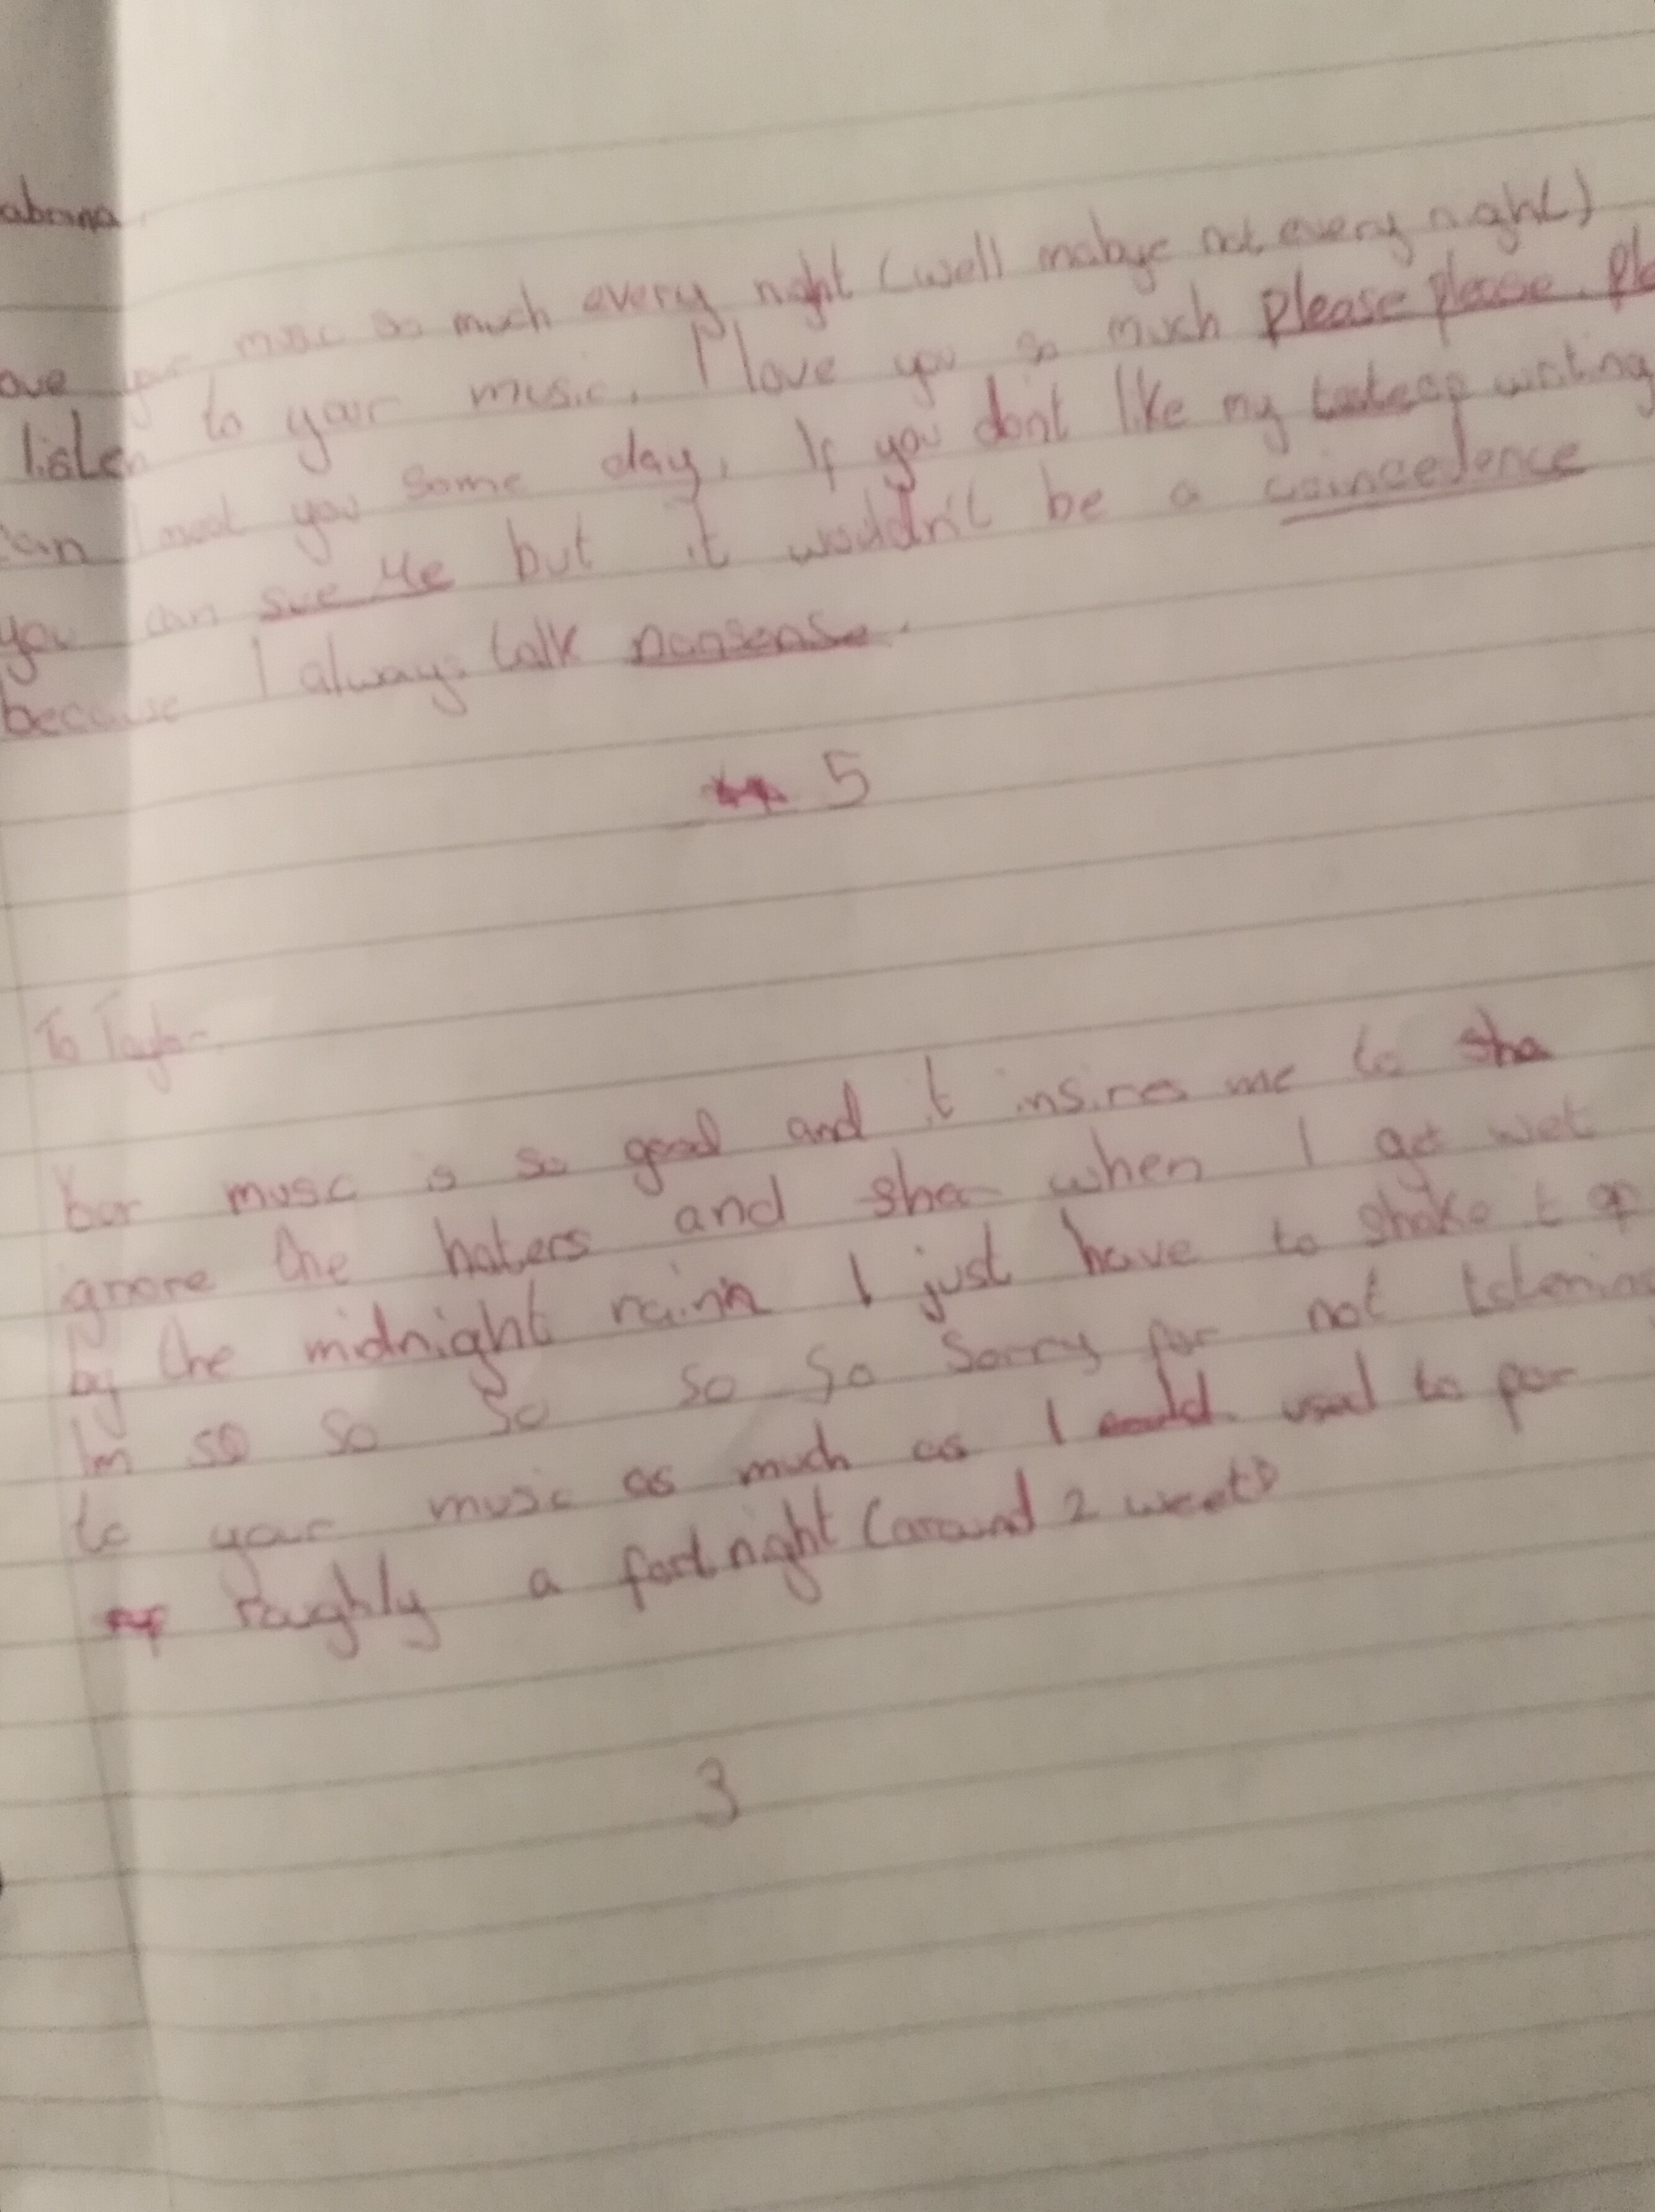 abrina
ove your music so much every night (well mabye not every night)
listen to your music. I love you so much please please ple
can I meet you some day. If you don't like my writing
you can sue Me but it wouldn't be a coincedence
because I always talk nonsense.
5
To Taylor
Your music is so good and it insires me to sha
gnore the haters and sha when I get wet
by the midnight rain I just have to shake it of
Im so so so so so sorry for not listening
to your music as much as I could used to for
roughly a fortnight (around 2 weeks)
3